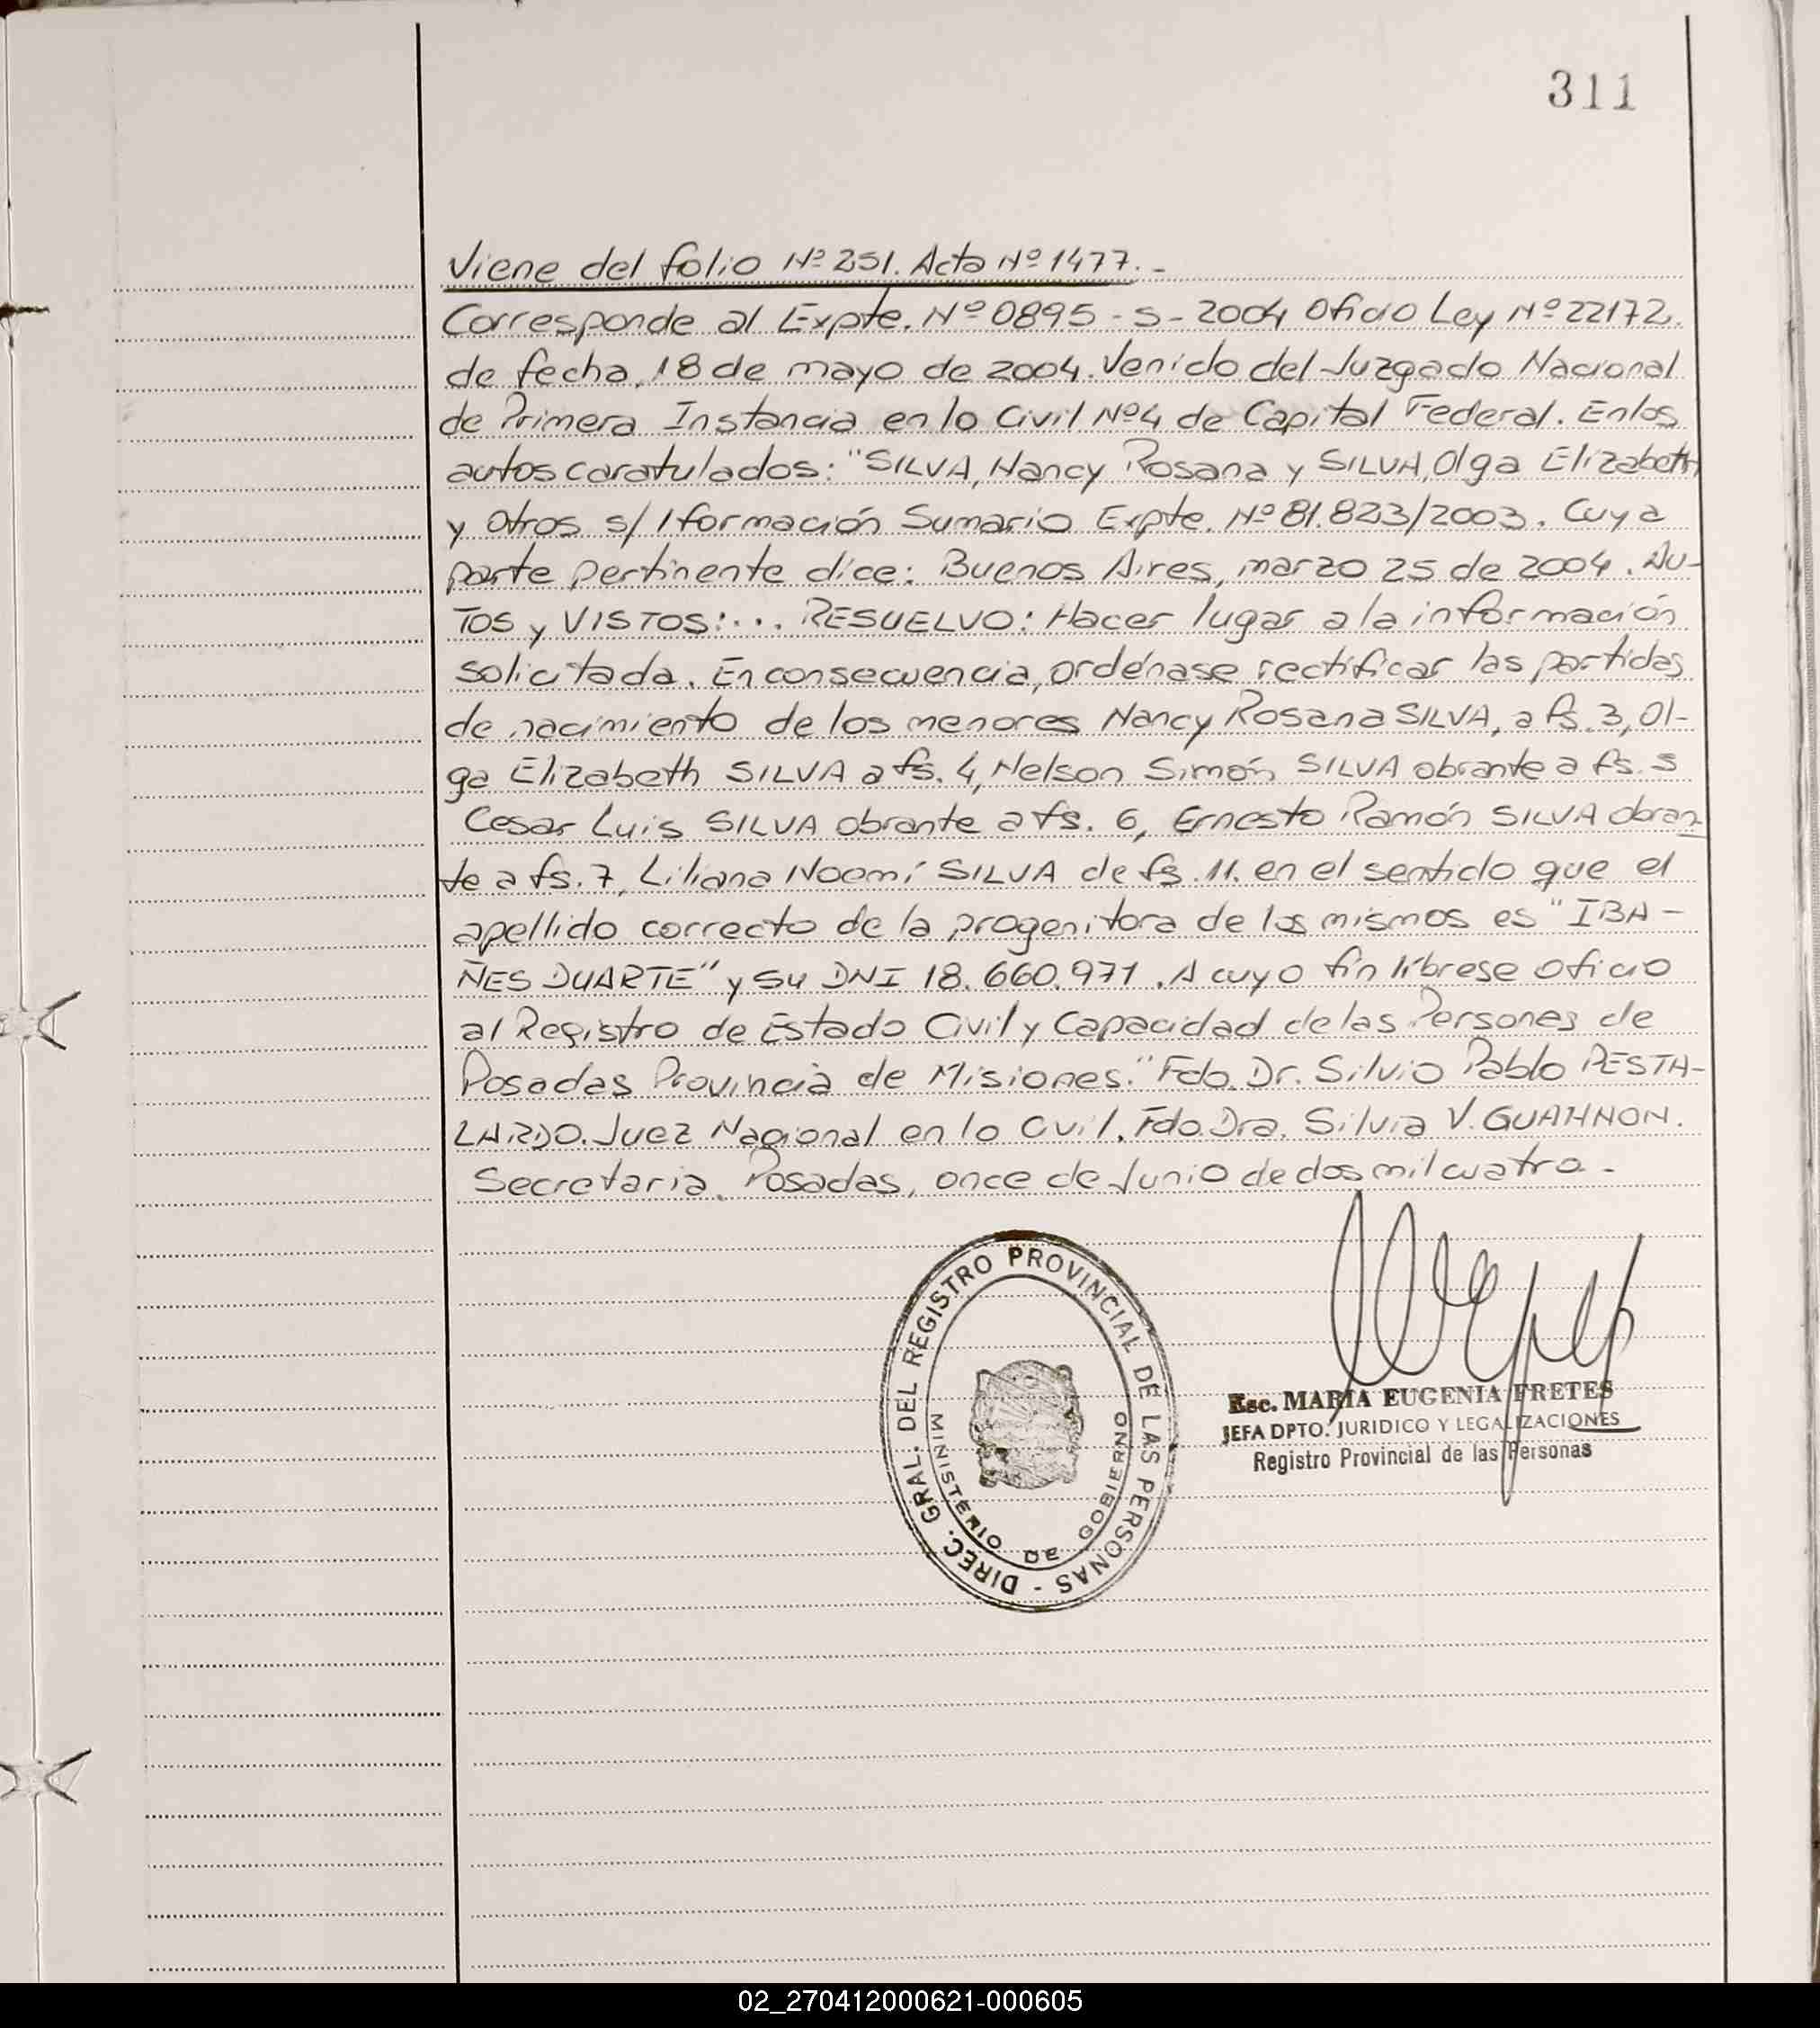 311
Viene del folio Nº 251. Acta Nº 1477.-
Corresponde al Expte. Nº 0895-S-2004 Oficio Ley Nº 22172.
de fecha, 18 de mayo de 2004. Venido del Juzgado Nacional
de Primera Instancia en lo Civil Nº4 de Capital Federal. En los
autos caratulados: "SILVA, Nancy Rosana y SILVA, Olga Elizabeth
y Otros s/ Iformación Sumario Expte. Nº 81.823/2003. Cuya
parte pertinente dice: Buenos Aires, marzo 25 de 2004. AU-
TOS y VISTOS:... RESUELVO: Hacer lugar a la información
solicitada. En consecuencia, ordénase rectificar las partidas
de nacimiento de los menores Nancy Rosana SILVA, a fs. 3, Ol-
ga Elizabeth SILVA a fs. 4, Nelson Simón SILVA obrante a fs. 5
Cesar Luis SILVA obrante a fs. 6, Ernesto Ramón SILVA obran-
te a fs. 7, Liliana Noemí SILVA de fs. 11. en el sentido que el
apellido correcto de la progenitora de los mismos es "IBA-
ÑES DUARTE" y su DNI 18.660.971. A cuyo fin líbrese oficio
al Registro de Estado Civil y Capacidad de las Persones de
Posadas Provincia de Misiones." Fdo. Dr. Silvio Pablo PESTA-
LARDO. Juez Nacional en lo Civil. Fdo. Dra. Silvia V. GUAHNON.
Secretaria. Posadas, once de Junio de dos mil cuatro.-
DIREC. GRAL. DEL REGISTRO PROVINCIAL DE LAS PERSONAS -
MINISTERIO DE GOBIERNO
Esc. MARIA EUGENIA FRETES
JEFA DPTO. JURIDICO Y LEGALIZACIONES
Registro Provincial de las Personas
02_270412000621-000605